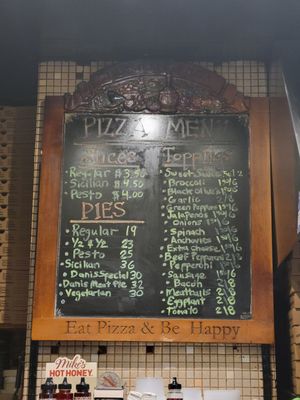 PIZZA MENU
Slices
Regular $3.50
Sicilian $4.50
Pesto $4.00
PIES
Regular 19
1/2 & 1/2 23
Pesto 25
Sicilian 36
Danis Special 30
Danis Meat Pie 32
Vegetarian 30
Toppings
Sweet Sausage
Broccoli
Black Olives
Garlic
Green Peppers
Jalapeños
Onions
Spinach
Anchovies
Extra Cheese
Beef Pepperoni
Pepperoni
Sausage
Bacon 2/8
Meatballs 2/8
Eggplant 2/8
Tomato 2/8
Eat Pizza & Be Happy
MIKE'S
HOT HONEY